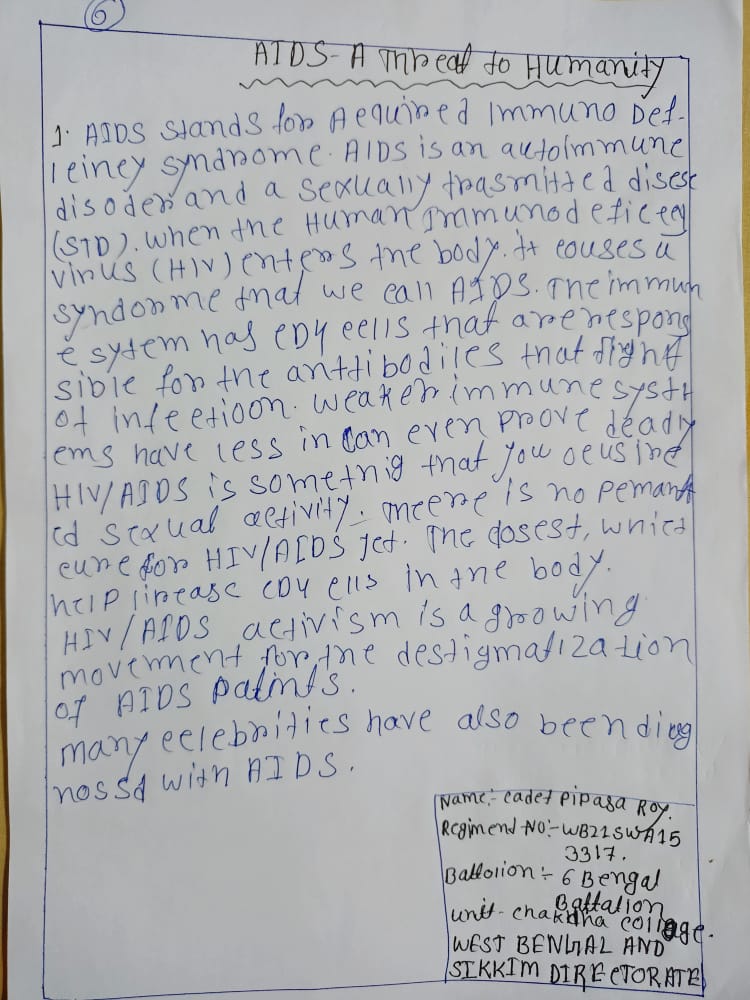 6
AIDS- A Threat to Humanity
1. AIDS stands for Aequired Immuno Def-
icieney syndrome. AIDS is an autoimmune
disoder and a sexually trasmitted disese
(STD). When the Human Immunodeficecy
virus (HIV) enters the body. It couses a
syndorme that we call AIDS. The immun
e sytem has CD4 cells that are respons
sible for the anttibodiles that fight
of infeetioon. Weaker immune syst
ems have less in can even prove deadly
HIV/AIDS is somethig that you
cd sexual activity. Theere is no pemant
cure for HIV/AIDS yet. The dosest, which
help lirease CD4 ells in the body.
HIV/AIDS activism is a growing
movement for the destigmatization
of AIDS patints.
many celebrities have also been diag
nossd with AIDS.
Name:- cadet Pipasa Roy.
Regimend NO:- WB21SWA15
3317.
Battolion:- 6 Bengal
Battalion
unit- chakdha college.
WEST BENGAL AND
SIKKIM DIRECTORATE